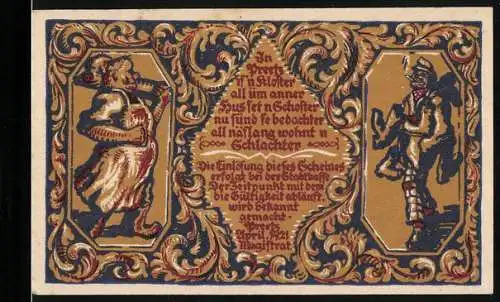 In
Preetz
is' n Kloster
all üm anner
Hus set n Schoster
nu sünd se bedachter
all näslang wohnt n
Schlachter
Die Einlösung dieses Scheines
erfolgt bei der Stadtkasse
Der Zeitpunkt mit dem
die Gültigkeit abläuft
wird bekannt
gemacht ·
Preetz
April 1921
Magistrat